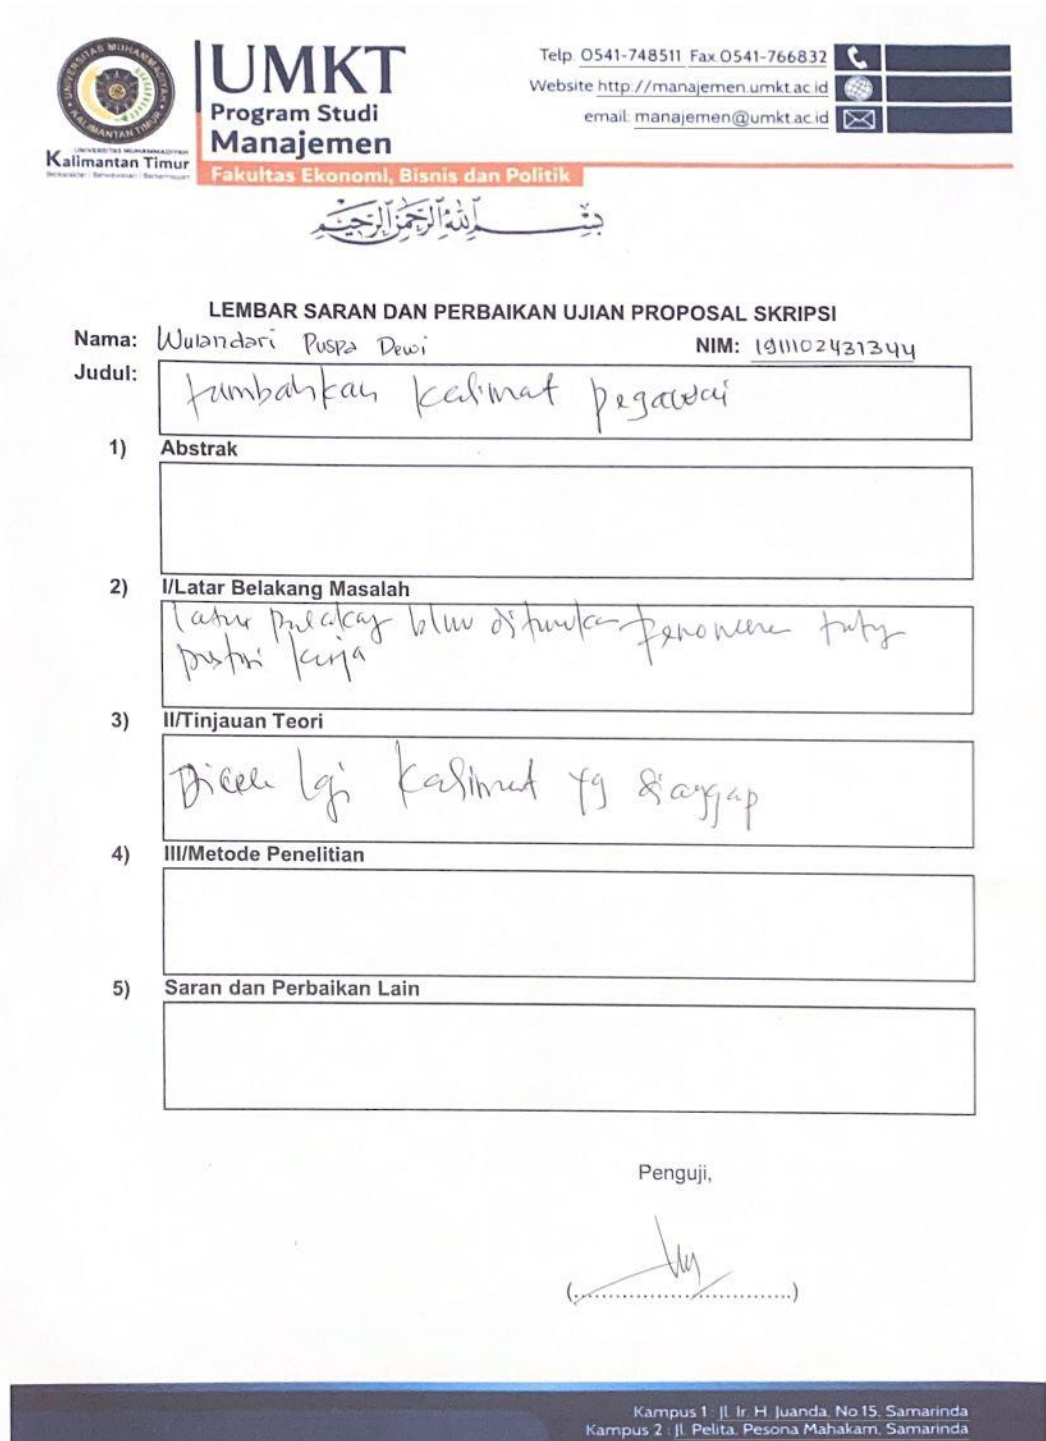 UNIVERSITAS MUHAMMADIYAH
KALIMANTAN TIMUR
UNIVERSITAS MUHAMMADIYAH
Kalimantan Timur
Berkarakter | Berwawasan | Berkemajuan
UMKT
Program Studi
Manajemen
Fakultas Ekonomi, Bisnis dan Politik
Telp. 0541-748511 Fax.0541-766832
Website http://manajemen.umkt.ac.id
email: manajemen@umkt.ac.id
بسم الله الرحمن الرحيم
LEMBAR SARAN DAN PERBAIKAN UJIAN PROPOSAL SKRIPSI
Nama: Wulandari Puspa Dewi NIM: 1911102431344
Judul:
tambahkan kalimat pegawai
1) Abstrak
2) I/Latar Belakang Masalah
latar belakang blm
kerja
3) II/Tinjauan Teori
Dicek lgi kalimat yg dianggap
4) III/Metode Penelitian
5) Saran dan Perbaikan Lain
Penguji,
(..............................)
Kampus 1 : Jl. Ir. H. Juanda, No 15, Samarinda
Kampus 2 : Jl. Pelita, Pesona Mahakam, Samarinda